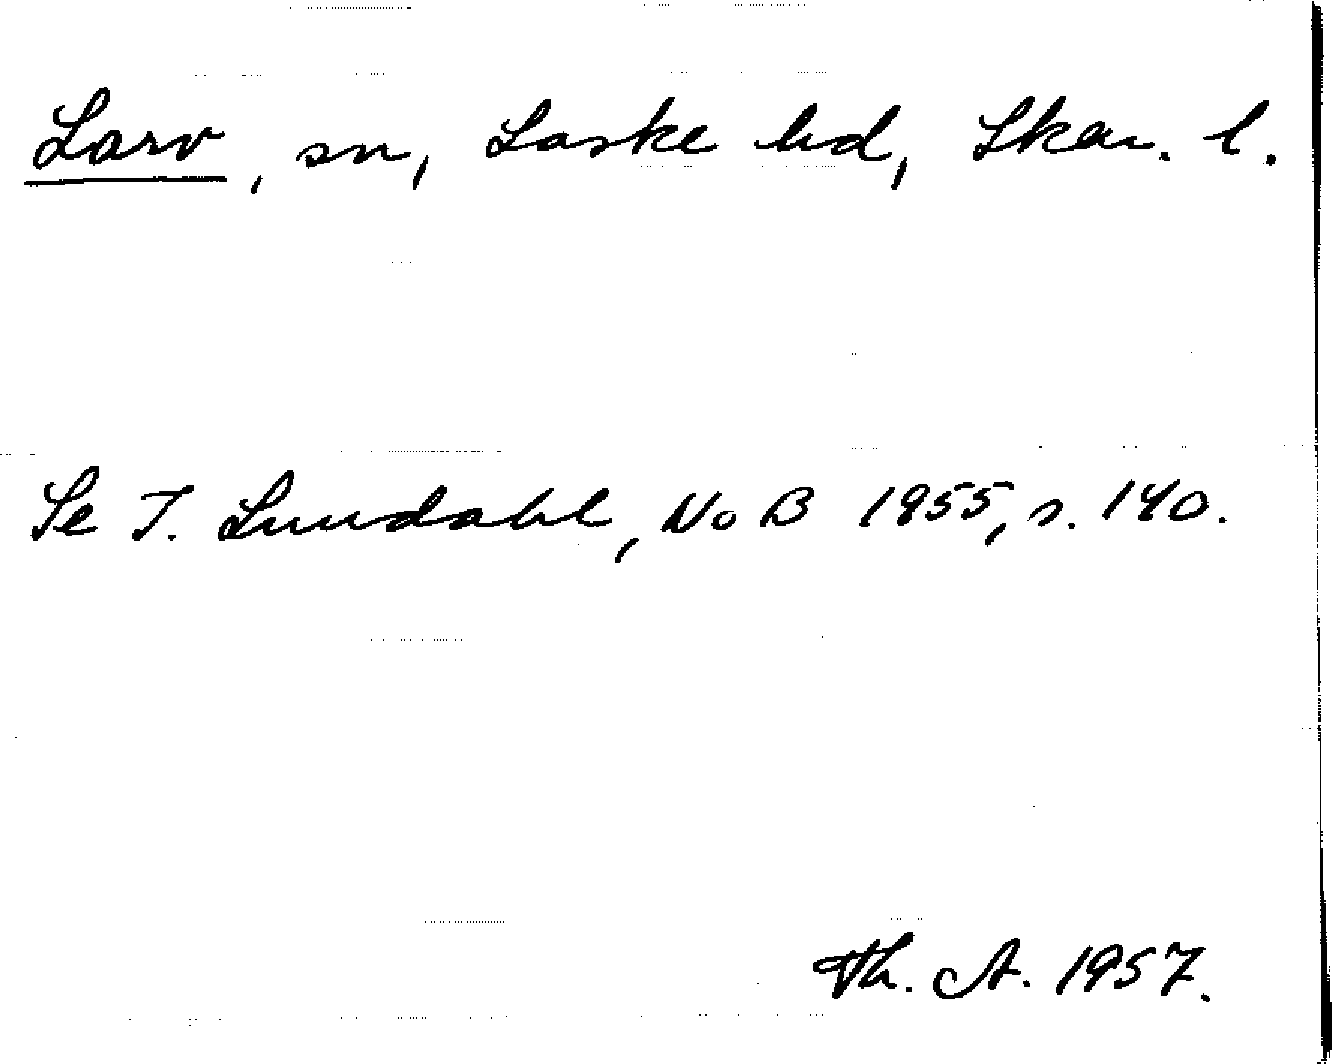 Larv, sn, Laske hd, Skar. l.
Se I. Lundahl, NoB 1955, s. 140.
Th. A. 1957.